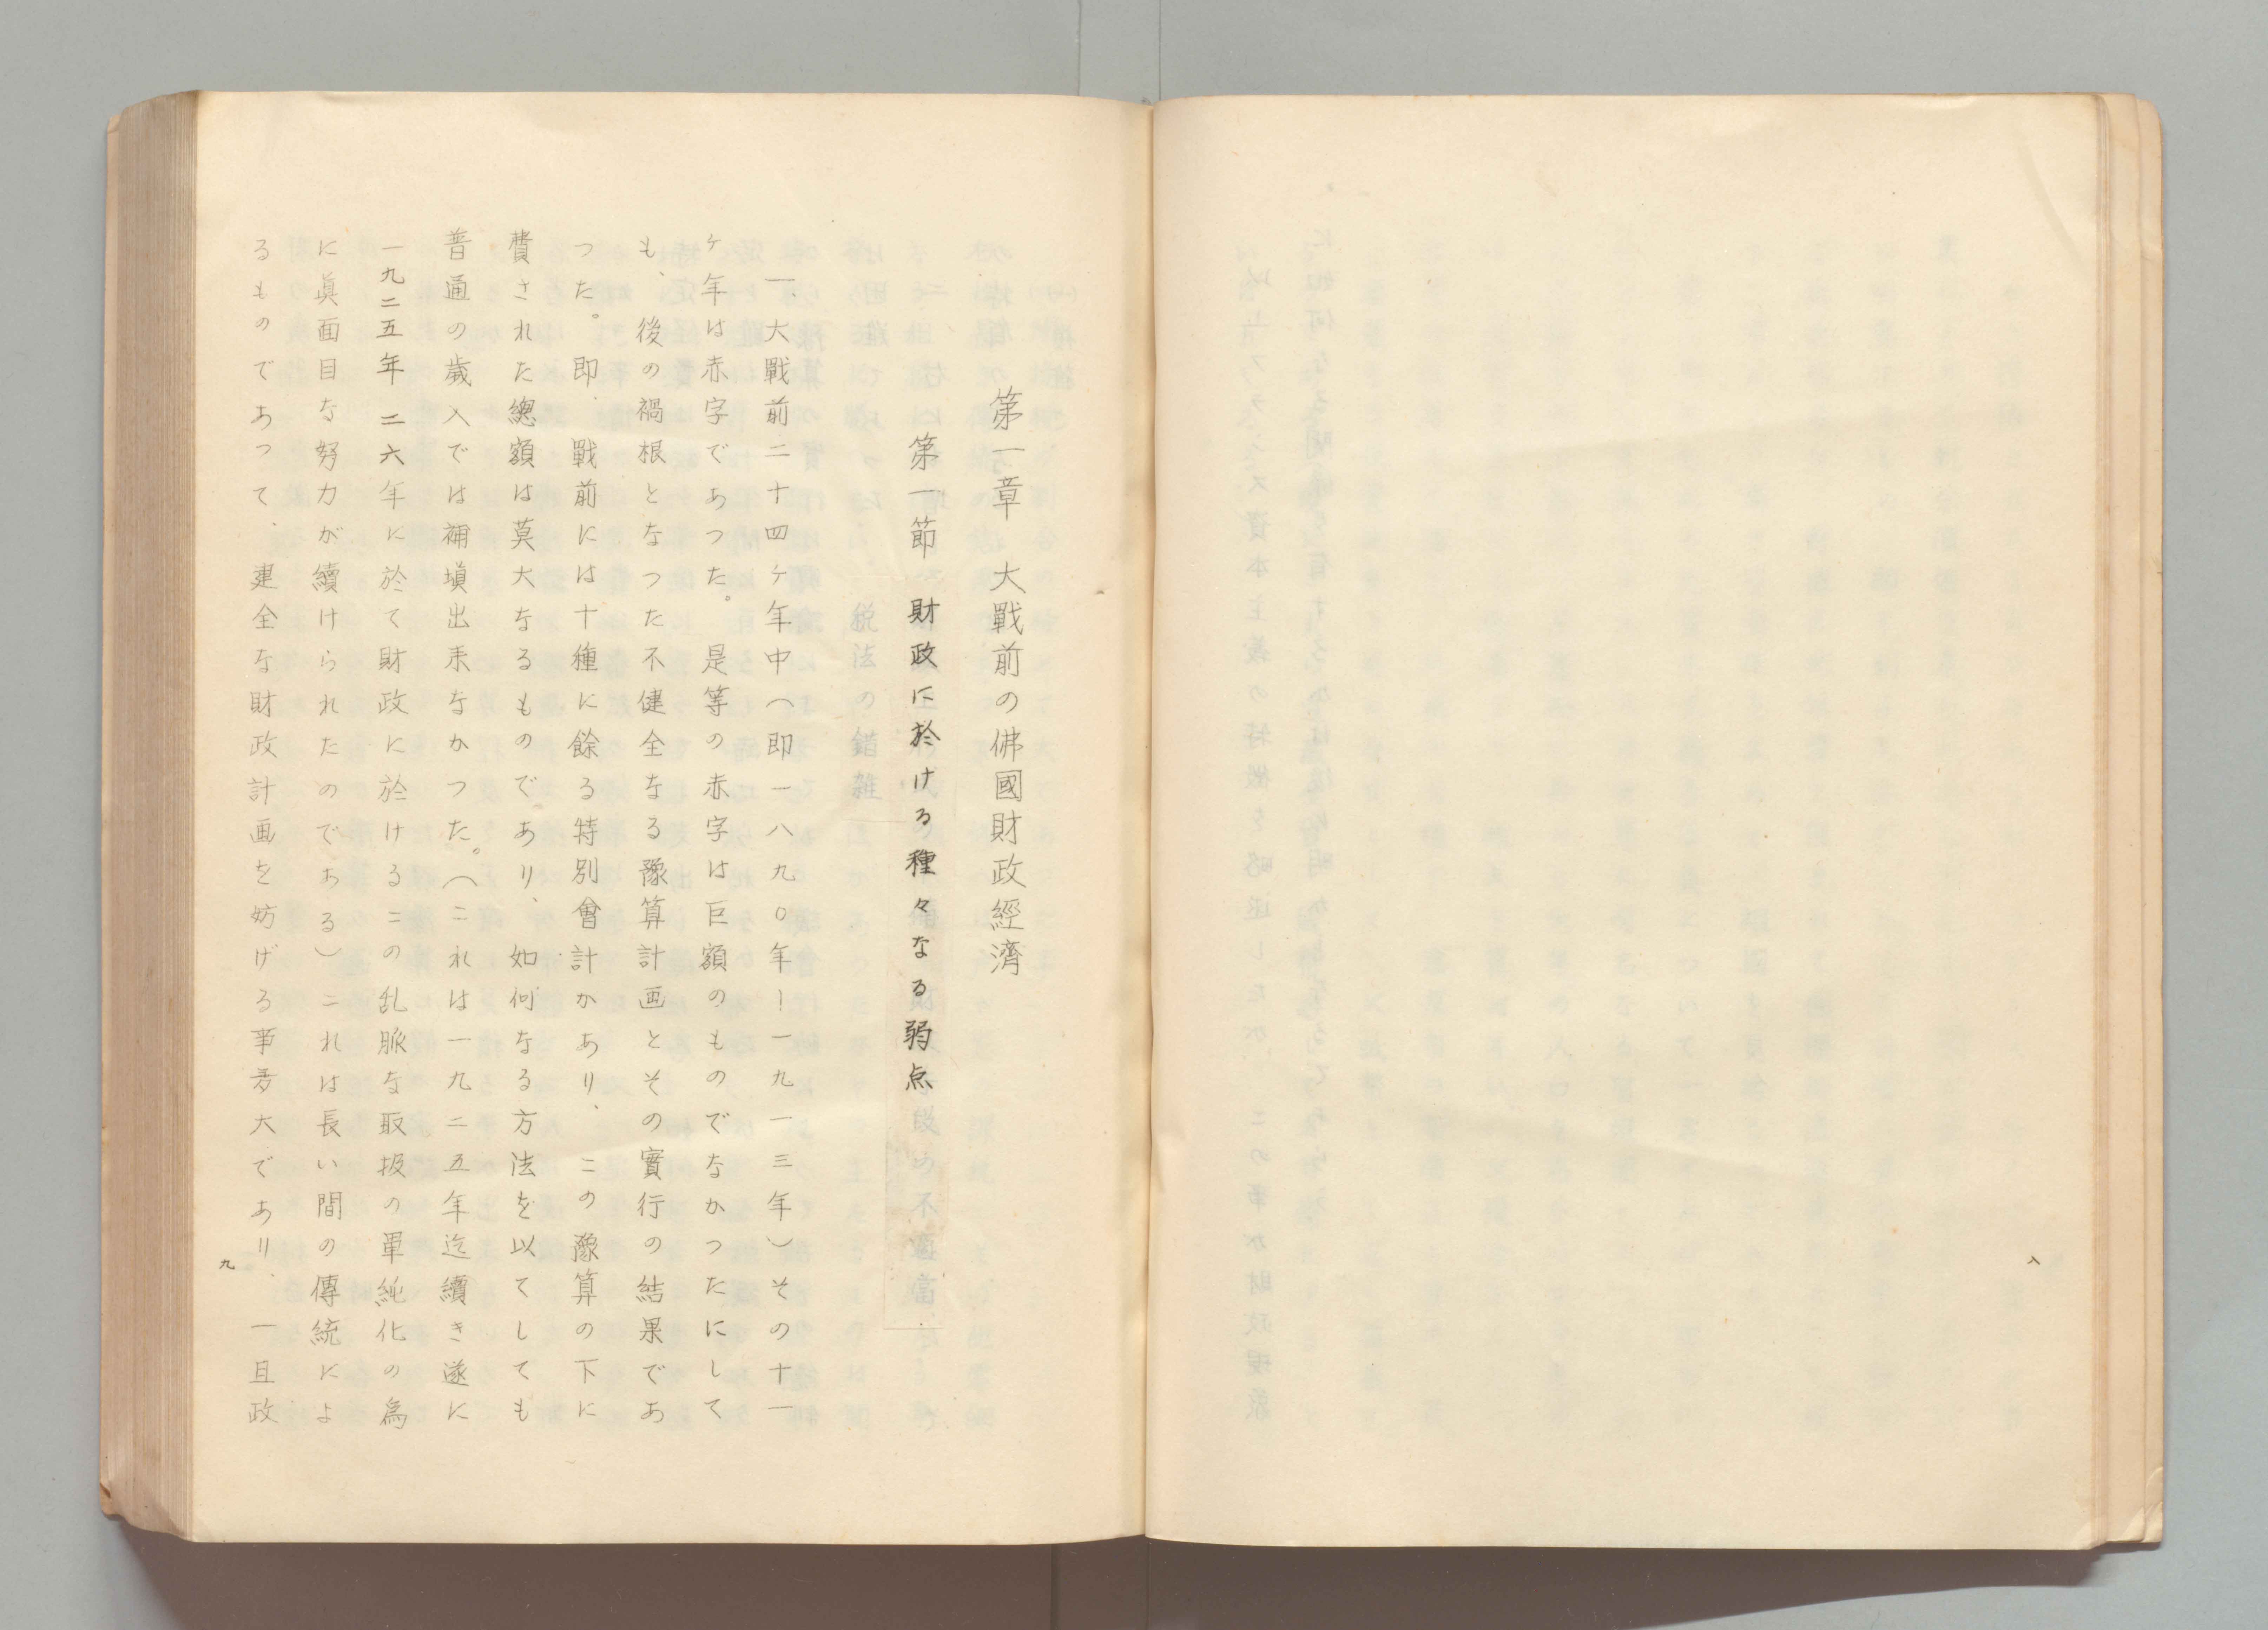 八
第一章　大戰前の佛國財政經濟
第一節　財政に於ける種々なる弱点
一、大戰前二十四ヶ年中（即一八九〇年ー一九一三年）その十一
ヶ年は赤字であつた。是等の赤字は巨額のものでなかつたにして
も、後の禍根となつた不健全なる豫算計画とその實行の結果であ
つた。即、戰前には十種に餘る特別會計があり、この豫算の下に
費された總額は莫大なるものであり、如何なる方法を以てしても
普通の歳入では補塡出来なかつた。（これは一九二五年迄續き遂に
一九二五年二六年に於て財政に於けるこの乱脈な取扱の單純化の為
に眞面目な努力が續けられたのである）これは長い間の傳統によ
るものであつて、建全な財政計画を妨げる事多大であり、一旦政
九